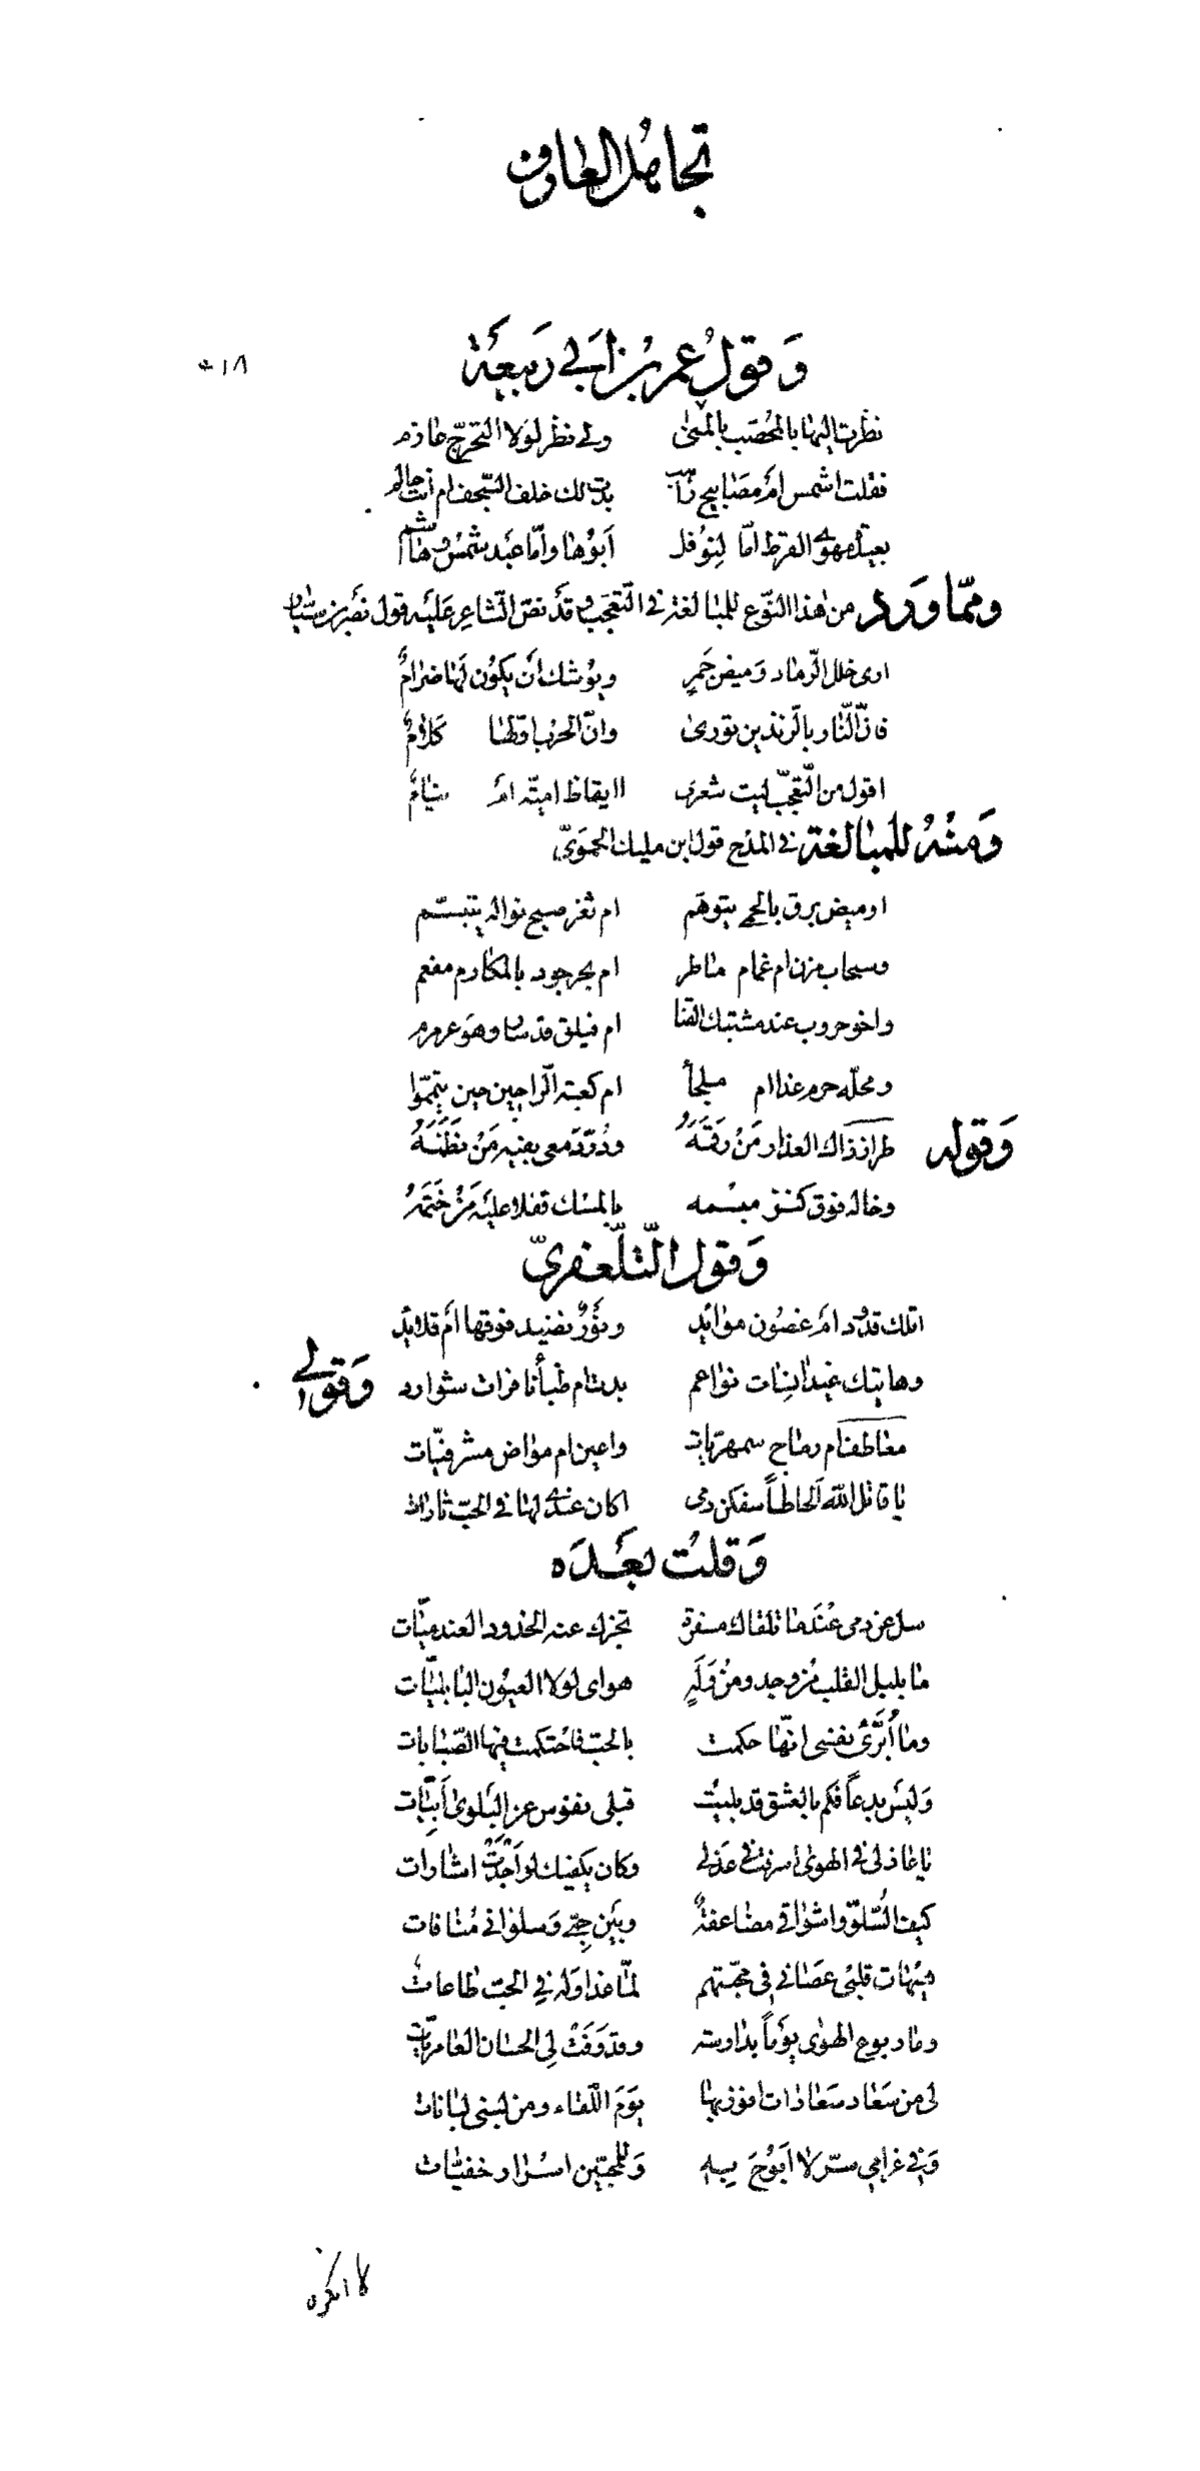 تجاهل العارف
وَقولُ عمر بن اَبي رَبيعَة
٢١٨
نظرت اليها بالمحُصّب بالمنىٰ ولي نظر لوَلا التحرّج عازم
فقلت اشمس امَ مصَابيح بدت لك خلف السّجف ام انت حالم
بعيدة مهوى القرط امّا لِنوُفل اَبوُها وامّا عَبد شمسُ وهاشم
وممّا وَرد من هٰذا النّوع للمبٰالغة في التّعجّب وقدَ نصّ الشّاعِر عَليَه قول نصَر بن سيّار
ارى خلل الرّماد وَميض جَمرٍ ويوُشك اَن يكوُن لهَا ضرٰامٌ
فانّ النّار بالزّندين تورىٰ وانّ الحرب اوّلهٰا كلامٌ
اقول من التّعجّب ليت شعرى اايقاظ اميّه امَ نيٰامٌ
وَمنْهُ للمبٰالغة في المدَح قول ابن مليك الحمَوَىّ
اوميض برق بالحمى يتوهّم ام ثغر صبح نواله يتبسّم
وسحاب مزن ام غمام مٰاطر ام بحر جود بالمكارم مفعم
واخو حروب عند مشتبك القنا ام فيلق قد سار وهوَ عرمرم
ومحلّه حرم غذا ام ملجأ ام كعبة الرّاجين حين يتمّموا
وَقوله
طراز ذاك العذار مَنْ رَقَمَهُ ودُرّ دَمعى بفيه مَنْ نظَمَهُ
وخاله فوق كنز مبسمه بالمسك قفلا عليَه مَنْ خَتَمَهُ
وَقول التّلّعفريّ
اتلك قدُود امَ غصُون موٰائِد ونوَرٌ نضيد فوقها امَ قلائِد
وهاتيك غيد انِسٰات نوٰاعم بدت ام ظبٰأ نافرات شوٰارد
وَقولي
معٰاطف ام رمٰاح سمهريّات واعين ام موٰاض مشرفيّات
يٰا قاتل اللّه اَلحاظاً سفكن دمى اكان عندى لهٰا في الحبّ ثارات
وَقلتُ بعَدَه
سل عن دمى عنُدَمٰا تلقاك مسفرة تخبرك عنه الخدود العندميّات
مٰا بلبل القلب مْن وجد ومنْ وَلَهٍ هواى لولا العيوُن البٰابليّات
ومٰا أبَُرّئ نفسى انّهٰا حكمت بالحبّ فاحْتكمت فيهٰا الصّبٰابات
وَليسَ بدعاً فكم بالعشق قد بليتَ قبلى نفوس عن البَلوىٰ اَبيّات
يٰا عٰاذلى في الهوىٰ اسرفت في عَذلى وكان يكفيك لو اجْدَتْ اشٰارات
كيف السُّلوّ واشوٰاقي مضٰاعفةٌ وبيَن حبّي وَسلوٰاني مُنٰافات
هيْهٰات قلبي عصَاني في محبّتهم لمّا غذا وَله في الحبّ طٰاعات
ومٰا ربوع الهوىٰ يوَماً بدٰارسة وقد وَفَتْ لِي الحسٰان العٰامريّات
لى من سعَاد سعَادٰات افوز بهٰا يوَمَ اللّقٰاء ومن لبنى لبٰانات
وَفي غرامي سرّ لا ابَوُحَ بِهِ وَللمحبّين اسْرٰار خفيّٰات
لا اكره